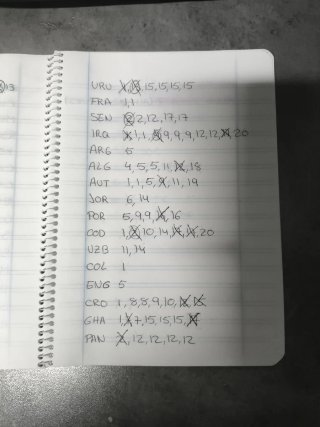 13
URU 15, 15, 15, 15
FRA 1, 1
SEN 2, 2, 12, 17, 17
IRQ 1, 1, 9, 9, 9, 12, 12, 20
ARG 5
ALG 4, 5, 5, 11, 18
AUT 1, 1, 5, 11, 19
JOR 6, 14
POR 5, 9, 9, 16
COD 1, 10, 14, 20
UZB 11, 14
COL 1
ENG 5
CRO 1, 8, 8, 9, 10
GHA 1, 7, 15, 15, 15
PAN 12, 12, 12, 12